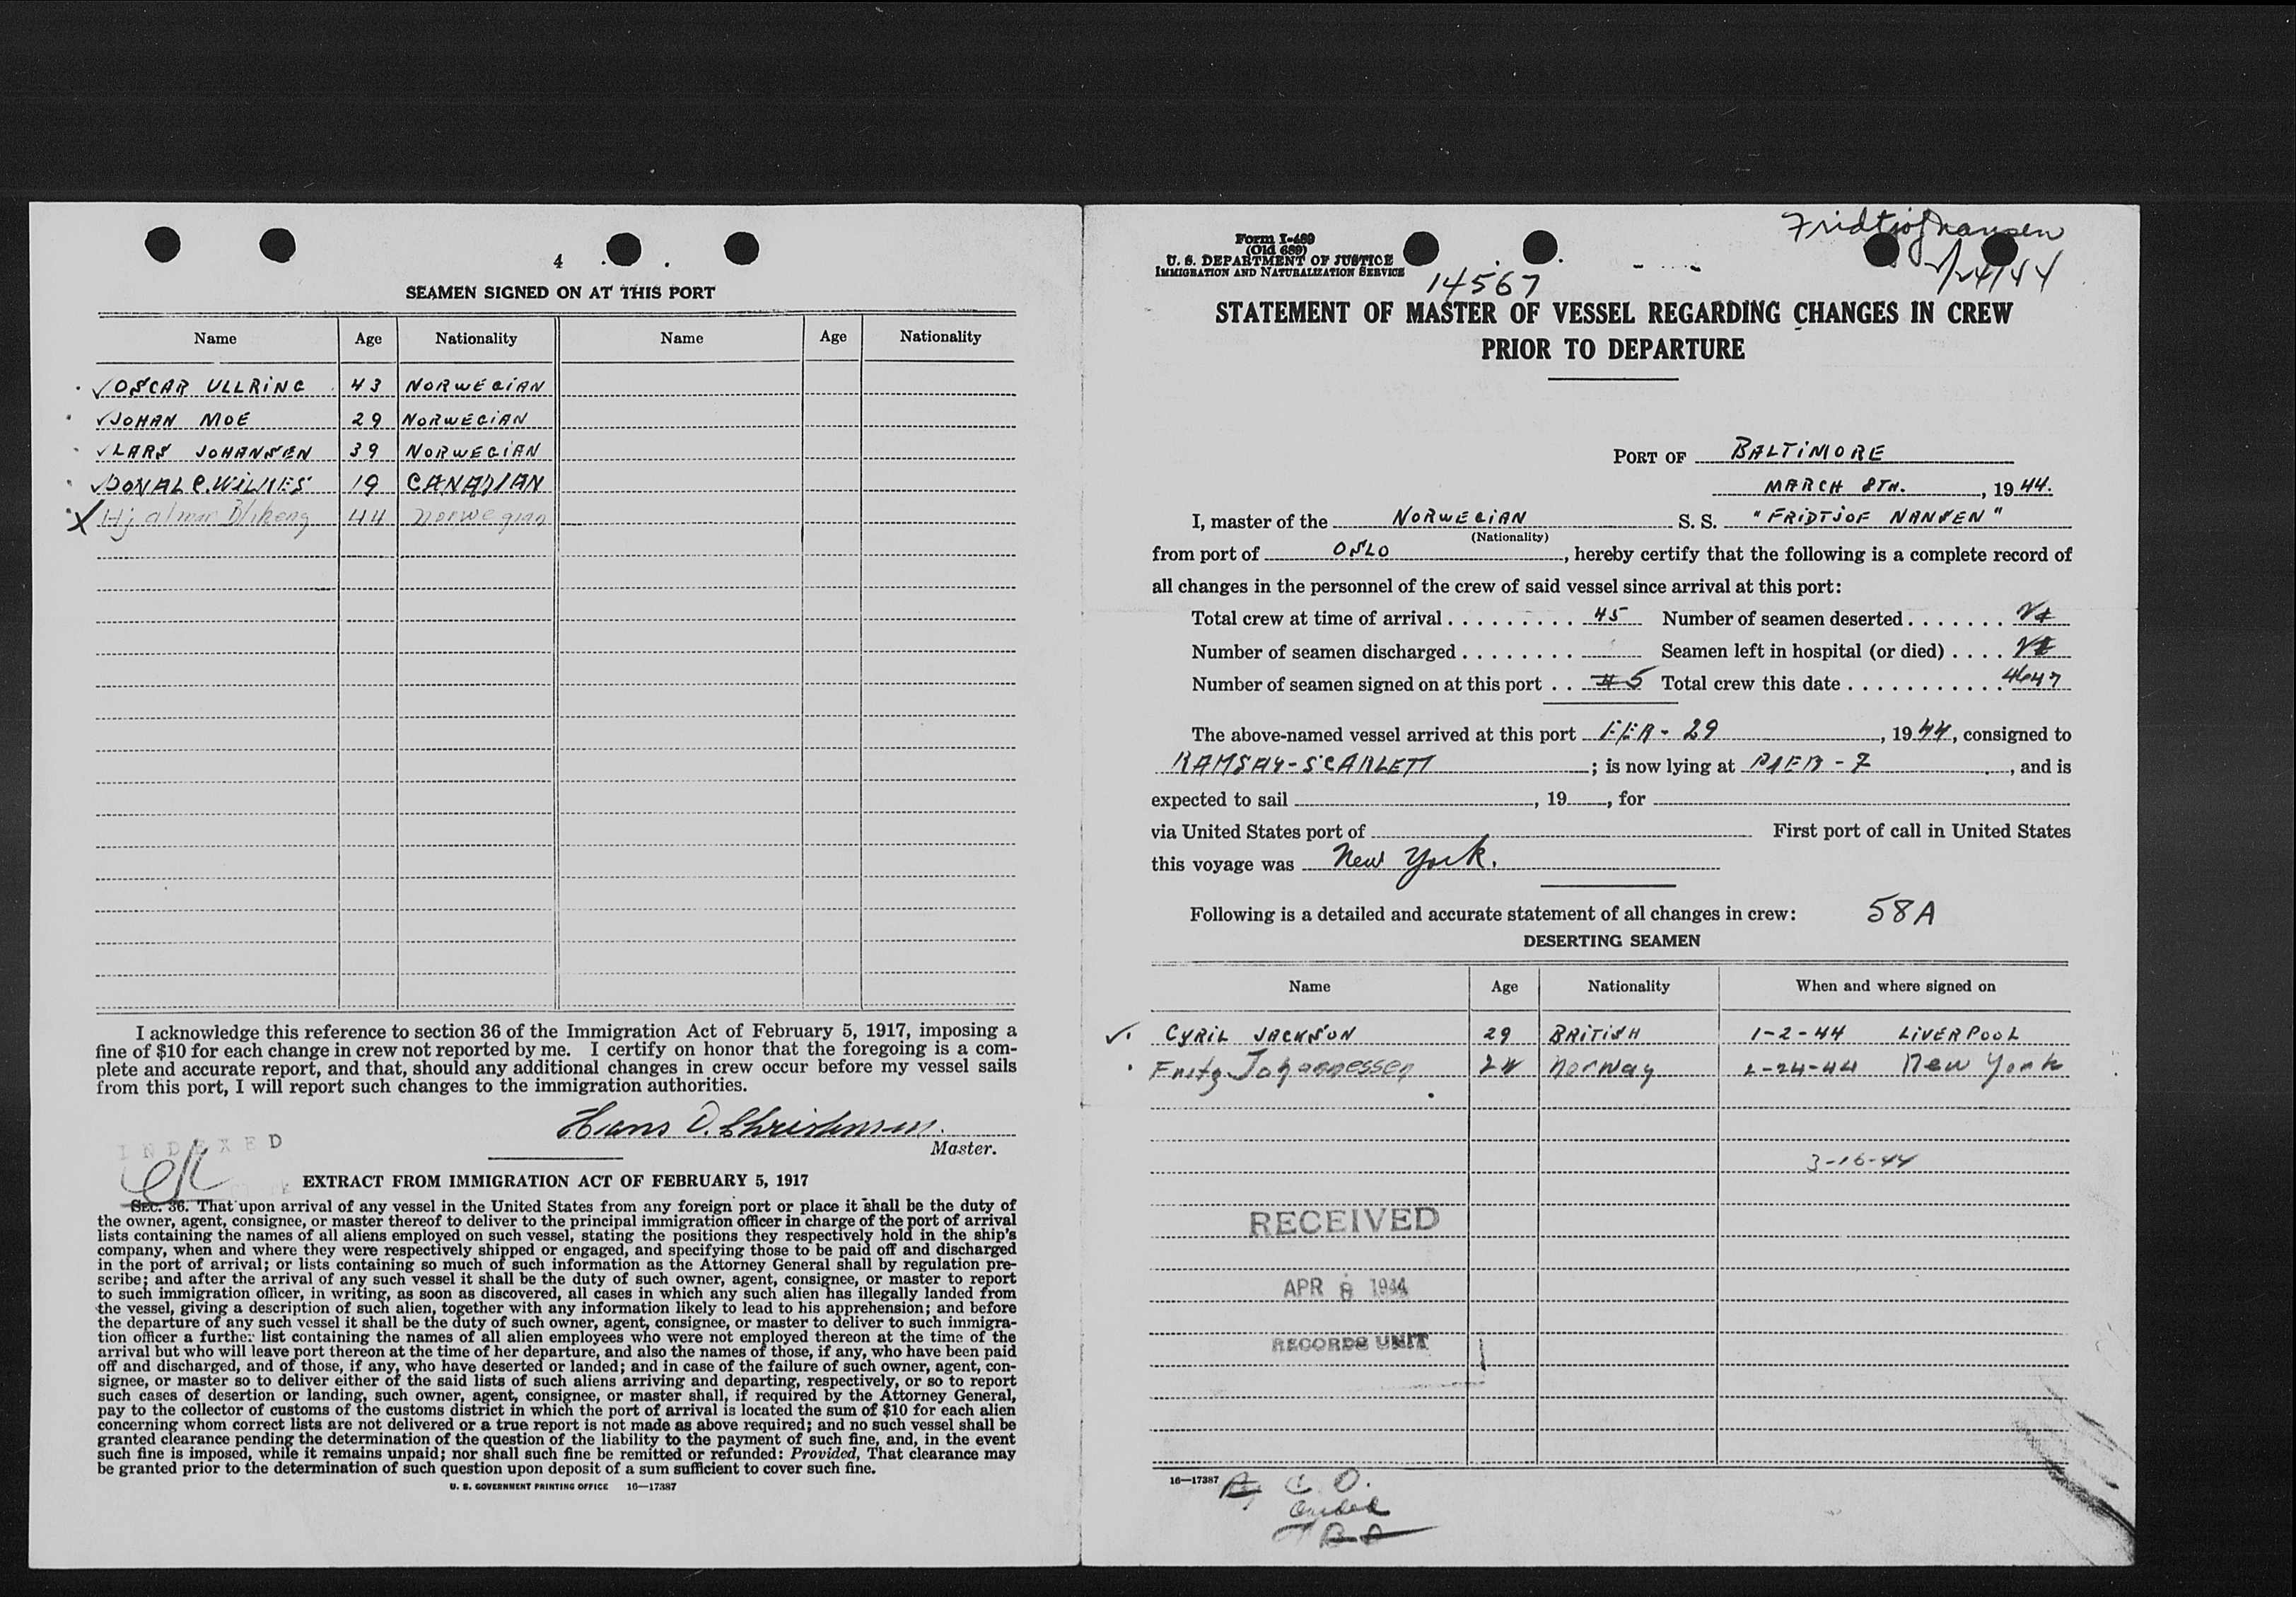 4
SEAMEN SIGNED ON AT THIS PORT
Name Age Nationality Name Age Nationality
✓ OSCAR ULLRING 43 NORWEGIAN
✓ JOHAN MOE 29 NORWEGIAN
✓ LARS JOHANSEN 39 NORWEGIAN
✓ DONAL C. WILKES 19 CANADIAN
X Hjalmar 44 norwegian
I acknowledge this reference to section 36 of the Immigration Act of February 5, 1917, imposing a
fine of $10 for each change in crew not reported by me. I certify on honor that the foregoing is a com-
plete and accurate report, and that, should any additional changes in crew occur before my vessel sails
from this port, I will report such changes to the immigration authorities.
Hans O. Christensen.
Master.
INDEXED
EXTRACT FROM IMMIGRATION ACT OF FEBRUARY 5, 1917
SEC. 36. That upon arrival of any vessel in the United States from any foreign port or place it shall be the duty of
the owner, agent, consignee, or master thereof to deliver to the principal immigration officer in charge of the port of arrival
lists containing the names of all aliens employed on such vessel, stating the positions they respectively hold in the ship's
company, when and where they were respectively shipped or engaged, and specifying those to be paid off and discharged
in the port of arrival; or lists containing so much of such information as the Attorney General shall by regulation pre-
scribe; and after the arrival of any such vessel it shall be the duty of such owner, agent, consignee, or master to report
to such immigration officer, in writing, as soon as discovered, all cases in which any such alien has illegally landed from
the vessel, giving a description of such alien, together with any information likely to lead to his apprehension; and before
the departure of any such vessel it shall be the duty of such owner, agent, consignee, or master to deliver to such immigra-
tion officer a further list containing the names of all alien employees who were not employed thereon at the time of the
arrival but who will leave port thereon at the time of her departure, and also the names of those, if any, who have been paid
off and discharged, and of those, if any, who have deserted or landed; and in case of the failure of such owner, agent, con-
signee, or master so to deliver either of the said lists of such aliens arriving and departing, respectively, or so to report
such cases of desertion or landing, such owner, agent, consignee, or master shall, if required by the Attorney General,
pay to the collector of customs of the customs district in which the port of arrival is located the sum of $10 for each alien
concerning whom correct lists are not delivered or a true report is not made as above required; and no such vessel shall be
granted clearance pending the determination of the question of the liability to the payment of such fine, and, in the event
such fine is imposed, while it remains unpaid; nor shall such fine be remitted or refunded: Provided, That clearance may
be granted prior to the determination of such question upon deposit of a sum sufficient to cover such fine.
U. S. GOVERNMENT PRINTING OFFICE 16—17387
Fridtjof Nansen
2/24/44
Form I-489
(Old 689)
U. S. DEPARTMENT OF JUSTICE
IMMIGRATION AND NATURALIZATION SERVICE
14567
STATEMENT OF MASTER OF VESSEL REGARDING CHANGES IN CREW
PRIOR TO DEPARTURE
PORT OF BALTIMORE
MARCH 8TH., 1944.
I, master of the NORWEGIAN S. S. "FRIDTJOF NANSEN"
(Nationality)
from port of OSLO, hereby certify that the following is a complete record of
all changes in the personnel of the crew of said vessel since arrival at this port:
Total crew at time of arrival 45 Number of seamen deserted
Number of seamen discharged Seamen left in hospital (or died)
Number of seamen signed on at this port 5 Total crew this date 47
The above-named vessel arrived at this port FEB - 29, 1944, consigned to
RAMSAY-SCARLETT; is now lying at PIER - 7, and is
expected to sail , 19 , for
via United States port of First port of call in United States
this voyage was New York.
Following is a detailed and accurate statement of all changes in crew: 58A
DESERTING SEAMEN
Name Age Nationality When and where signed on
✓ CYRIL JACKSON 29 BRITISH 1-2-44 LIVERPOOL
Fritz Johannessen Norway 2-24-44 New York
3-16-44
RECEIVED
APR 8 1944
RECORDS UNIT
16—17387
C. O.